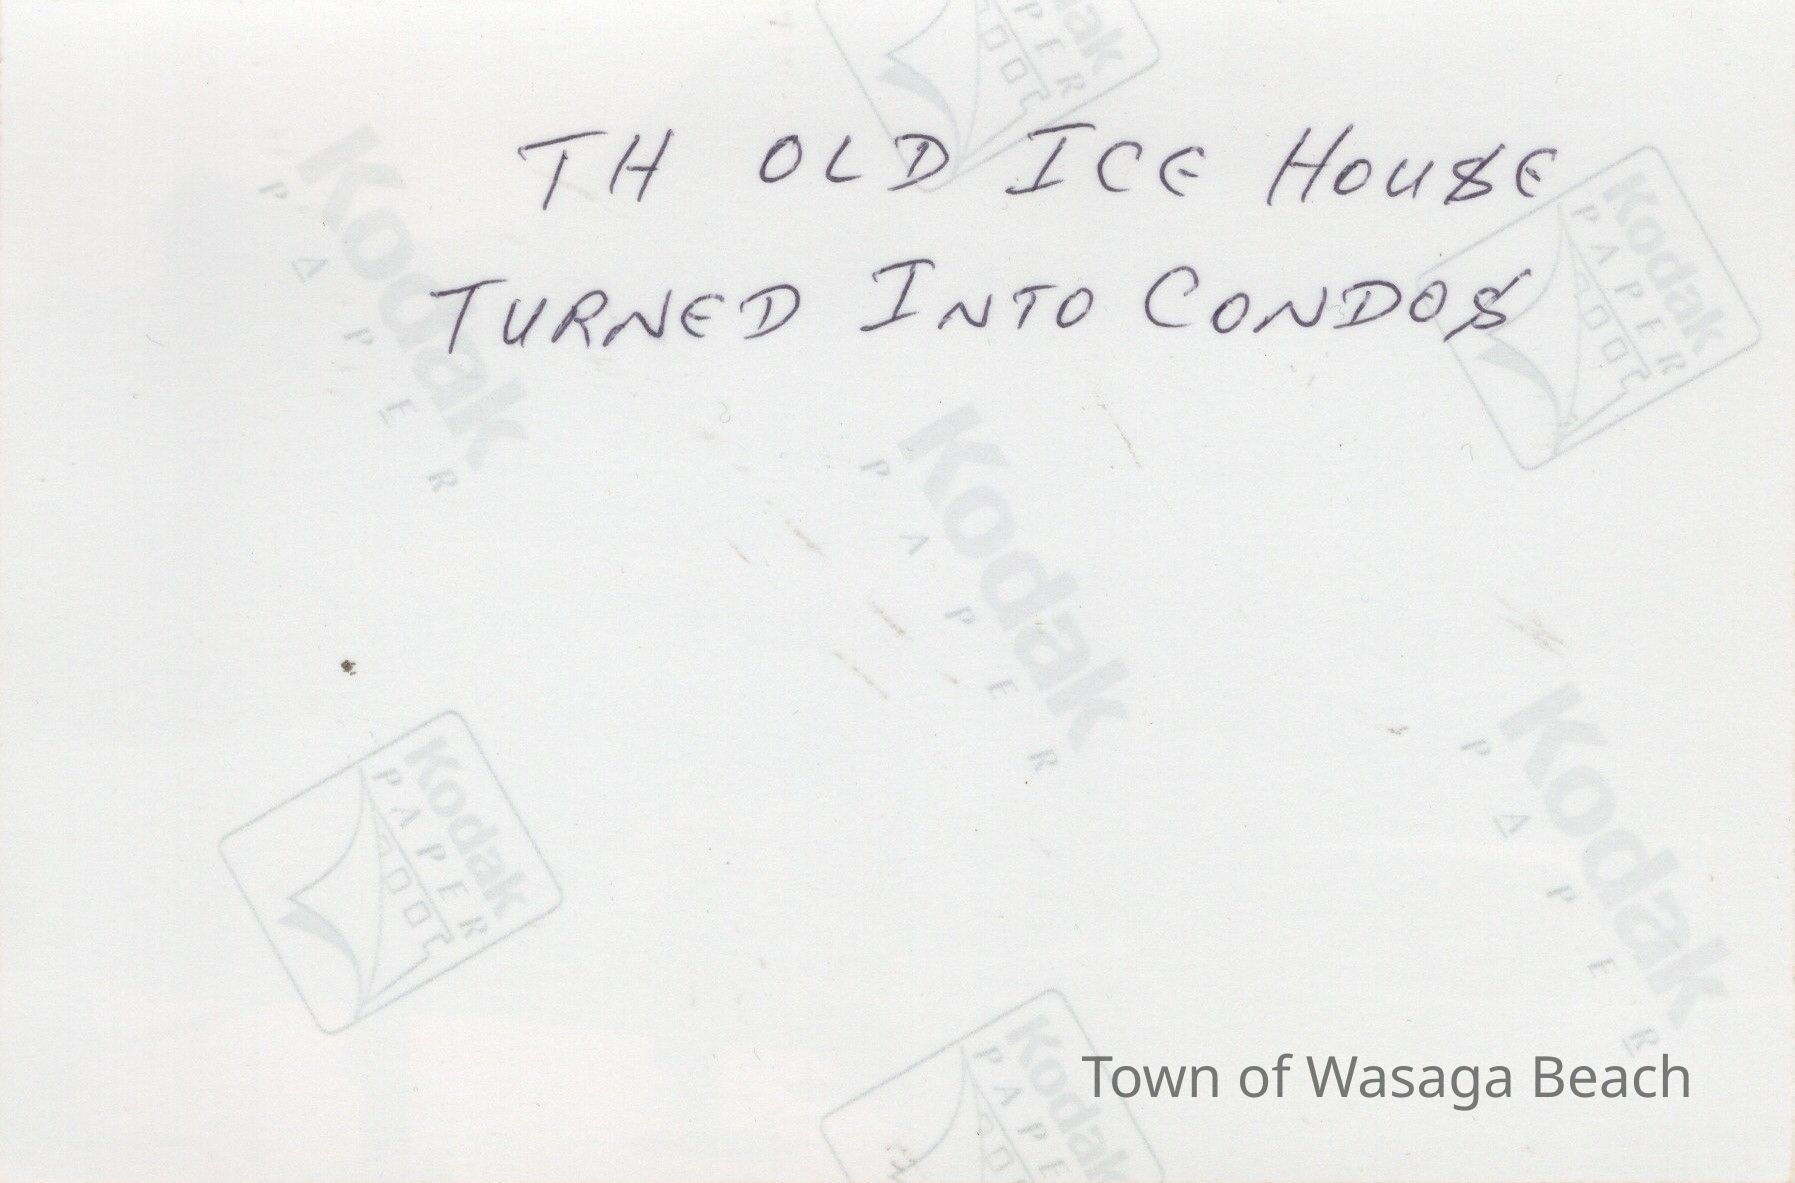 TH OLD ICE HOUSE
TURNED INTO CONDOS
Kodak PAPER
Kodak
PAPER
Kodak PAPER
Kodak
PAPER
Kodak
PAPER
Kodak PAPER
Kodak PAPER
Town of Wasaga Beach